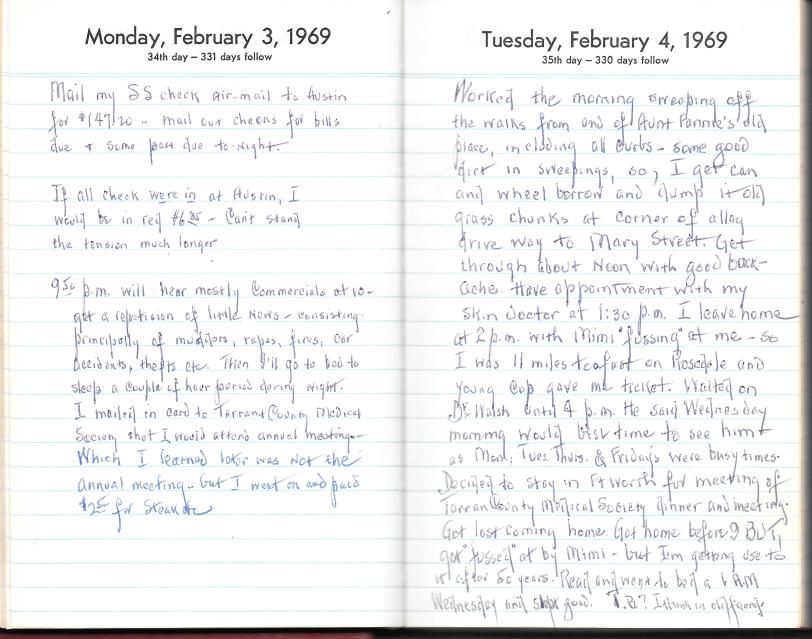 Monday, February 3, 1969
34th day – 331 days follow
Mail my SS check air-mail to Austin
for $147.20 .. mail out checks for bills
due & some past due to-night
If all check were in at Austin, I
would be in red - Can't stand
the tension much longer
9 50 p.m. will hear mostly Commercials at 10-
get a repetition of little News - consisting
principally of murders, rapes, fires, car
accidents, thefts etc. Then I'll go to bed to
sleep a couple of hour period during night.
I mailed in card to Tarrant County Medical
Society that I would attend annual meeting-
Which I learned later was not the
annual meeting - but I went on and paid
for Steak
Tuesday, February 4, 1969
35th day – 330 days follow
Worked the morning sweeping off
the walks from end of Aunt Fannie's old
place, including all curbs - some good
dirt in sweepings, so, I get can
and wheel borrow and dump it old
grass chunks at corner of alley
drive way to Mary Street. Get
through about Noon with good back-
ache. Have appointment with my
skin doctor at 1:30 p.m. I leave home
at 2 p.m. with Mimi "fussing" at me - so
I was 11 miles too fast on Rosedale and
young Cop gave me ticket. Waited on
Dr Walsh until 4 p.m. He said Wednesday
morning would best time to see him
as Mon., Tues. Thurs. & Fridays were busy times.
Decided to stay in Ft Worth for meeting of
Tarrant County Medical Society dinner and meeting.
Got lost coming home. Got home before 9 BUT,
got "fussed" at by Mimi - but I'm getting use to
it after 50 years. Read and went to bed a 6 AM
Wednesday and slept good. T.B.? I